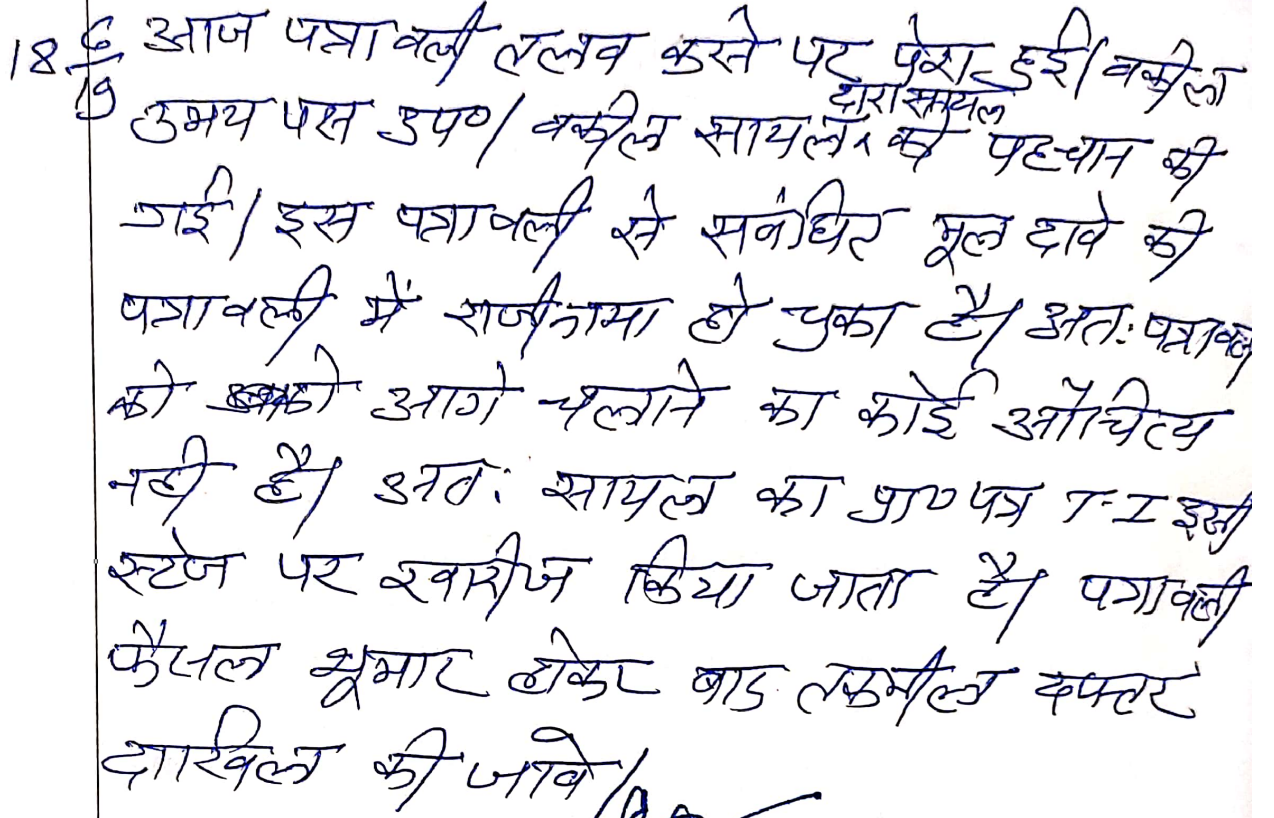 18 6/19 आज पत्रावली तलब करने पर पेश हुई। वकील
उभय पक्ष उप०। वकील सायल द्वारा सायल की पहचान की
गई। इस पत्रावली से सबंधित मूल दावे की
पत्रावली में राजीनामा हो चुका है। अत: पत्रावली
को आगे चलाने का कोई औचित्य
नही है। अत: सायल का प्रा० पत्र T-I इसी
स्टेज पर खारीज किया जाता है। पत्रावली
फैसल शूमार होकर बाद तकमील दफ्तर
दाखिल की जावे।